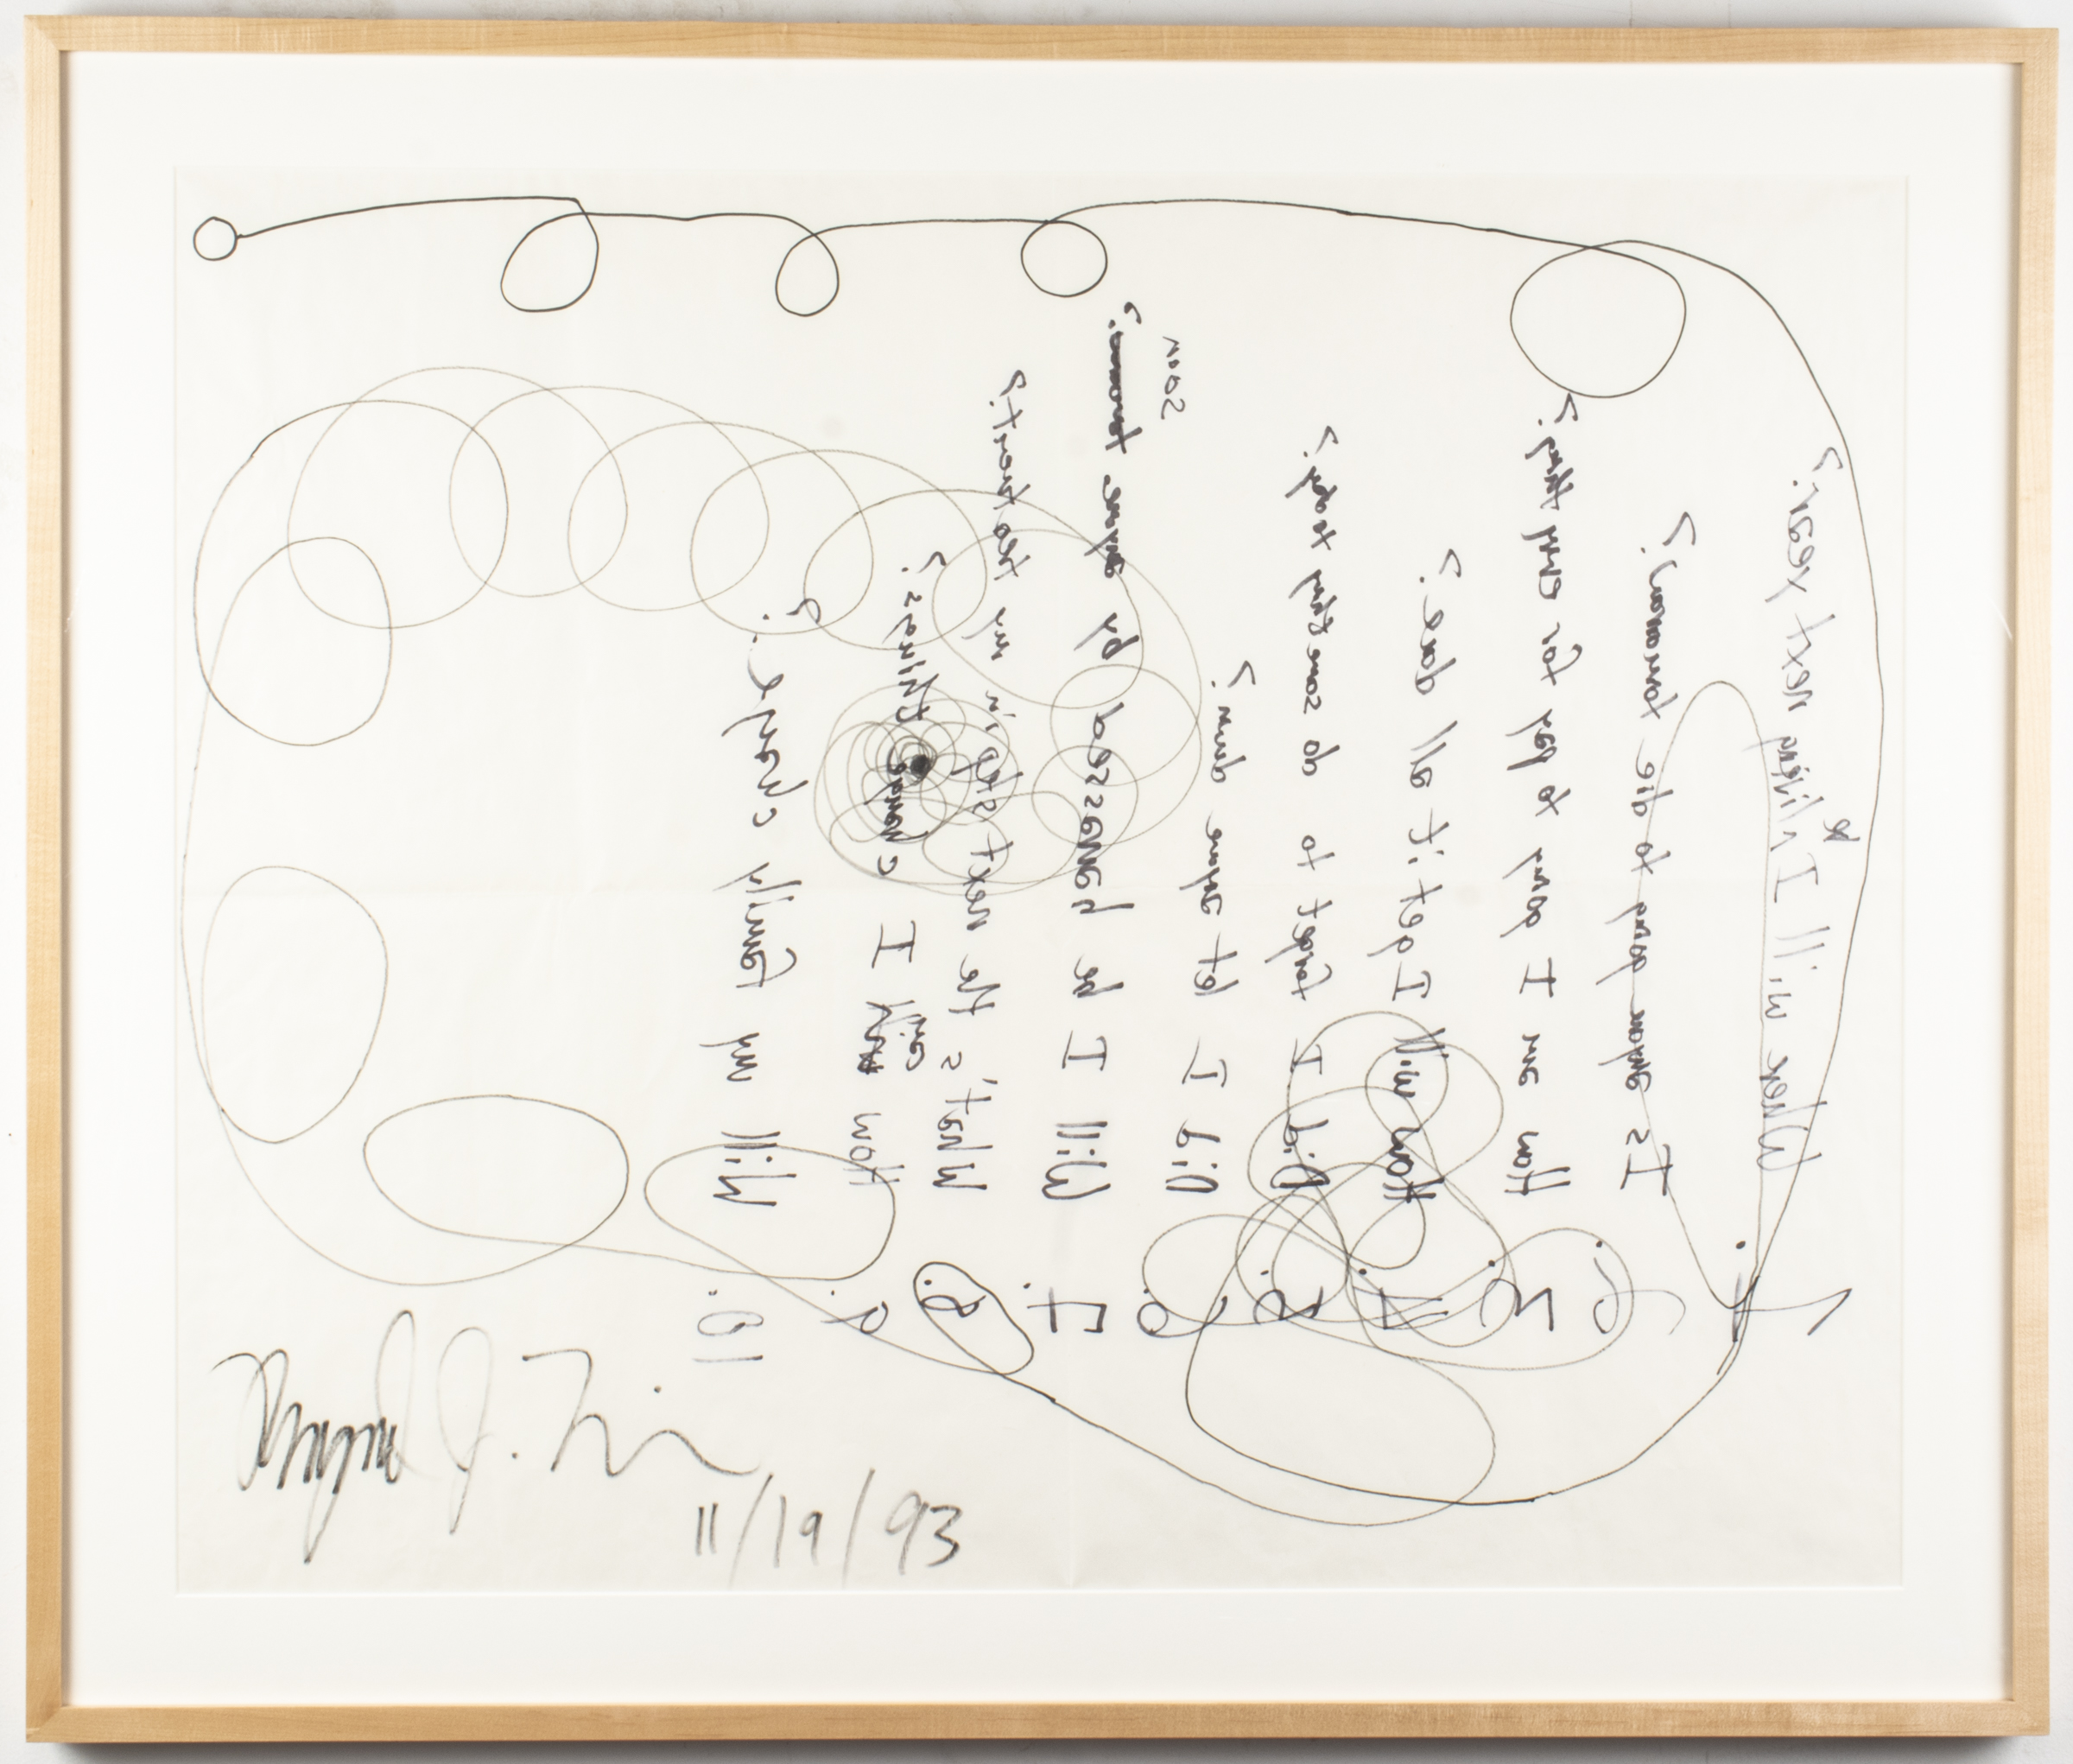 1. Where will I be living next year?
2. Is anyone going to die tomorrow?
3. How am I going to pay for everything?
4. How will I get it all done?
5. Did I forget to do something today?
6. Did I let anyone down?
7. Will I be harassed by anyone tomorrow? soon
8. What's the next step in my treatment?
9. How will I change things?
10. Will my family change?
11/19/93